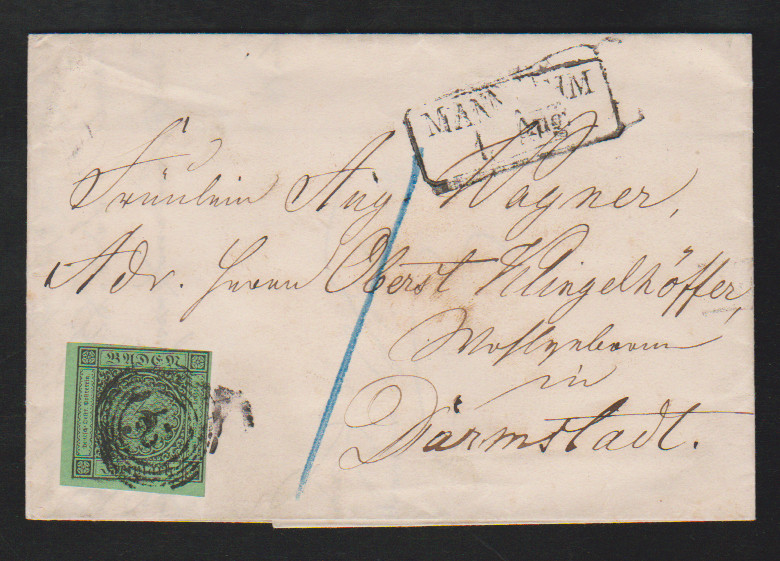 MANNHEIM
1. Aug.
Fräulein Aug. Wagner,
Adr. Herrn Oberst Klingelhöffer,
in
Darmstadt.
BADEN